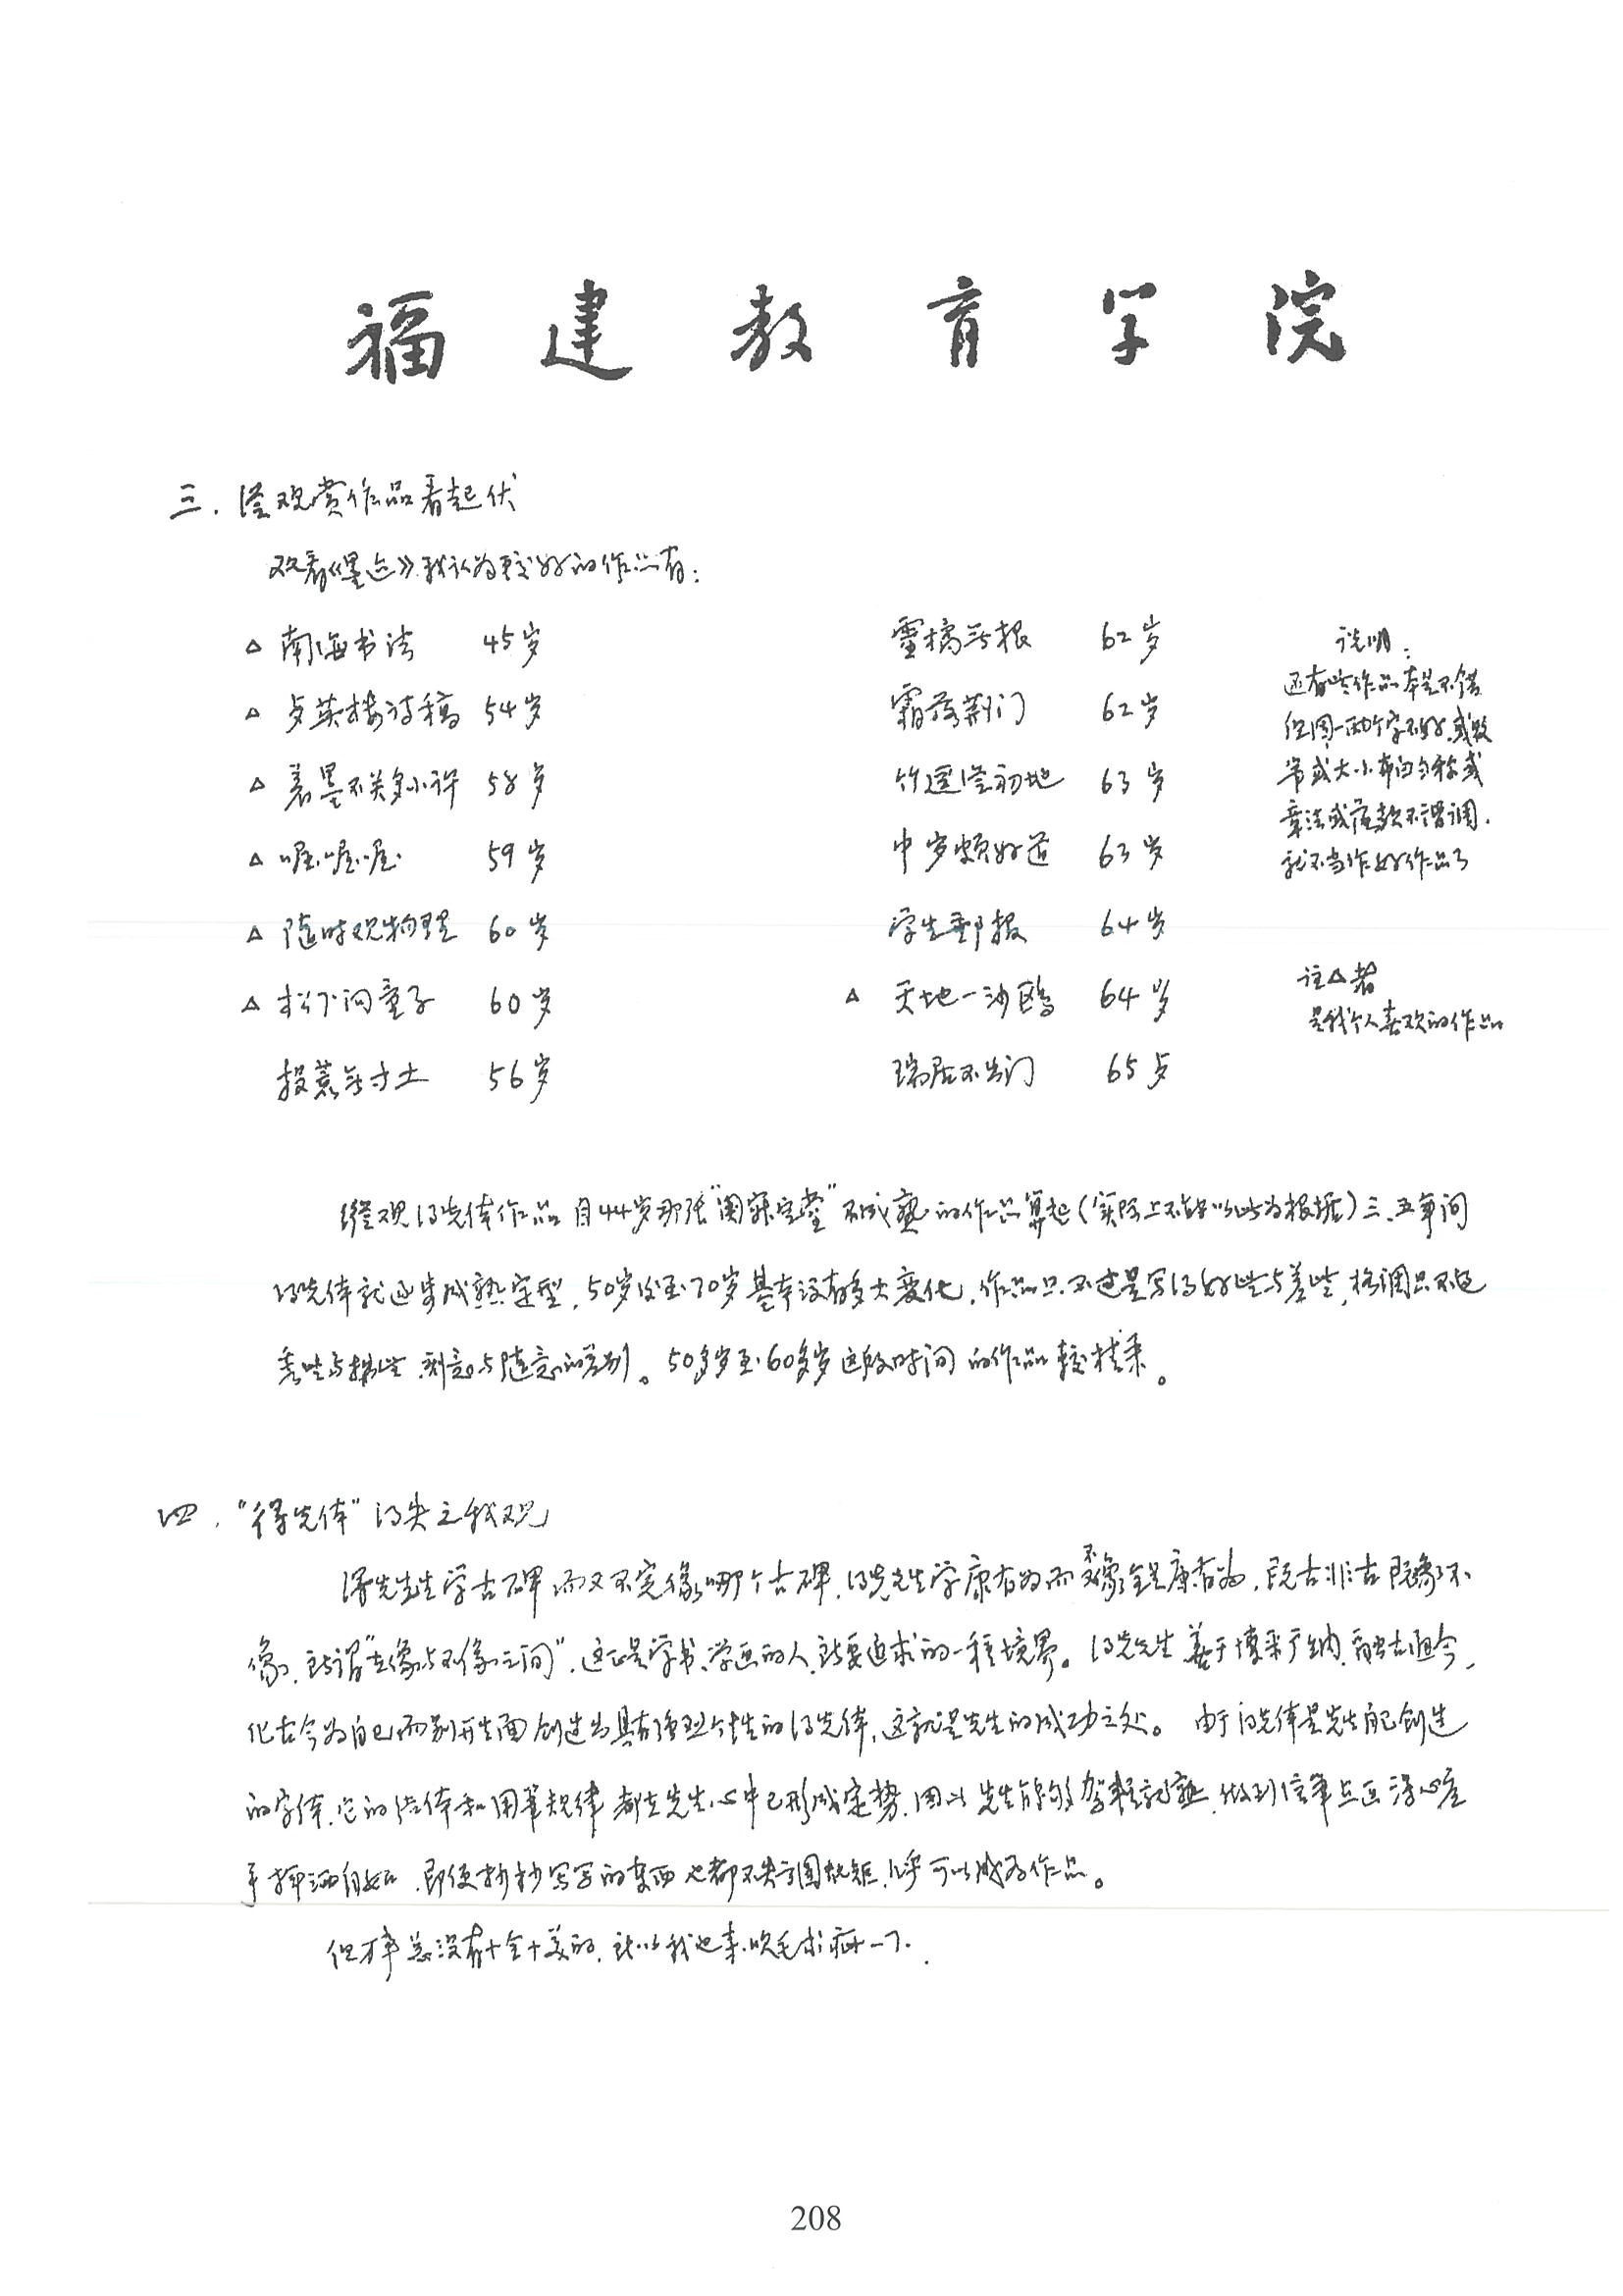 福建教育学院
三.从观赏作品看起伏
观看《墨迹》我认为较好的作品有:
△ 南海书法 45岁
△ 英楼诗稿 54岁
△ 着墨不关多小许 58岁
△ 喔喔喔 59岁
△ 随时观物理 60岁
△ 松下问童子 60岁
投荒无寸土 56岁
灵槎无根 62岁
霜落荆门 62岁
竹径从初地 63岁
中岁颇好道 63岁
学生邮报 64岁
△ 天地一沙鸥 64岁
瑞居不出门 65岁
说明:
还有些作品本是不错
但因一两个字不好,或败
笔或大小布白匀称或
章法或落款不谐调.
就不当作好作品了
注△者
是我个人喜欢的作品
纵观得先体作品自44岁那张"阒寂空堂"不成熟的作品算起(实际上不能以此为根据)三、五年间
得先体就逐步成熟定型,50岁后至70岁基本没有多大变化,作品只不过是写得好些与差些,格调只不过
秀些与拙些,刻意与随意的差别。50多岁至60多岁这段时间的作品较精采。
四."得先体"得失之我观
得先先生学古碑而又不完像哪个古碑,得先先生学康有为而又不像全是康有为,既古非古既像不
像,所谓"在像与不像之间",这正是学书、学画的人所要追求的一种境界。得先先生善于博采广纳,融古汇今,
化古今为自己而别开生面创造出具有强烈个性的得先体,这就是先生的成功之处。由于得先体是先生自己创造
的字体,它的结体和用笔规律都在先生心中已形成定势,因以先生能够驾轻就熟,做到信笔点画得心应
手挥洒自如,即便抄抄写写的东西也都不失方圆规矩,几乎可以成为作品。
但万事总没有十全十美的,所以我也来吹毛求疵一下.